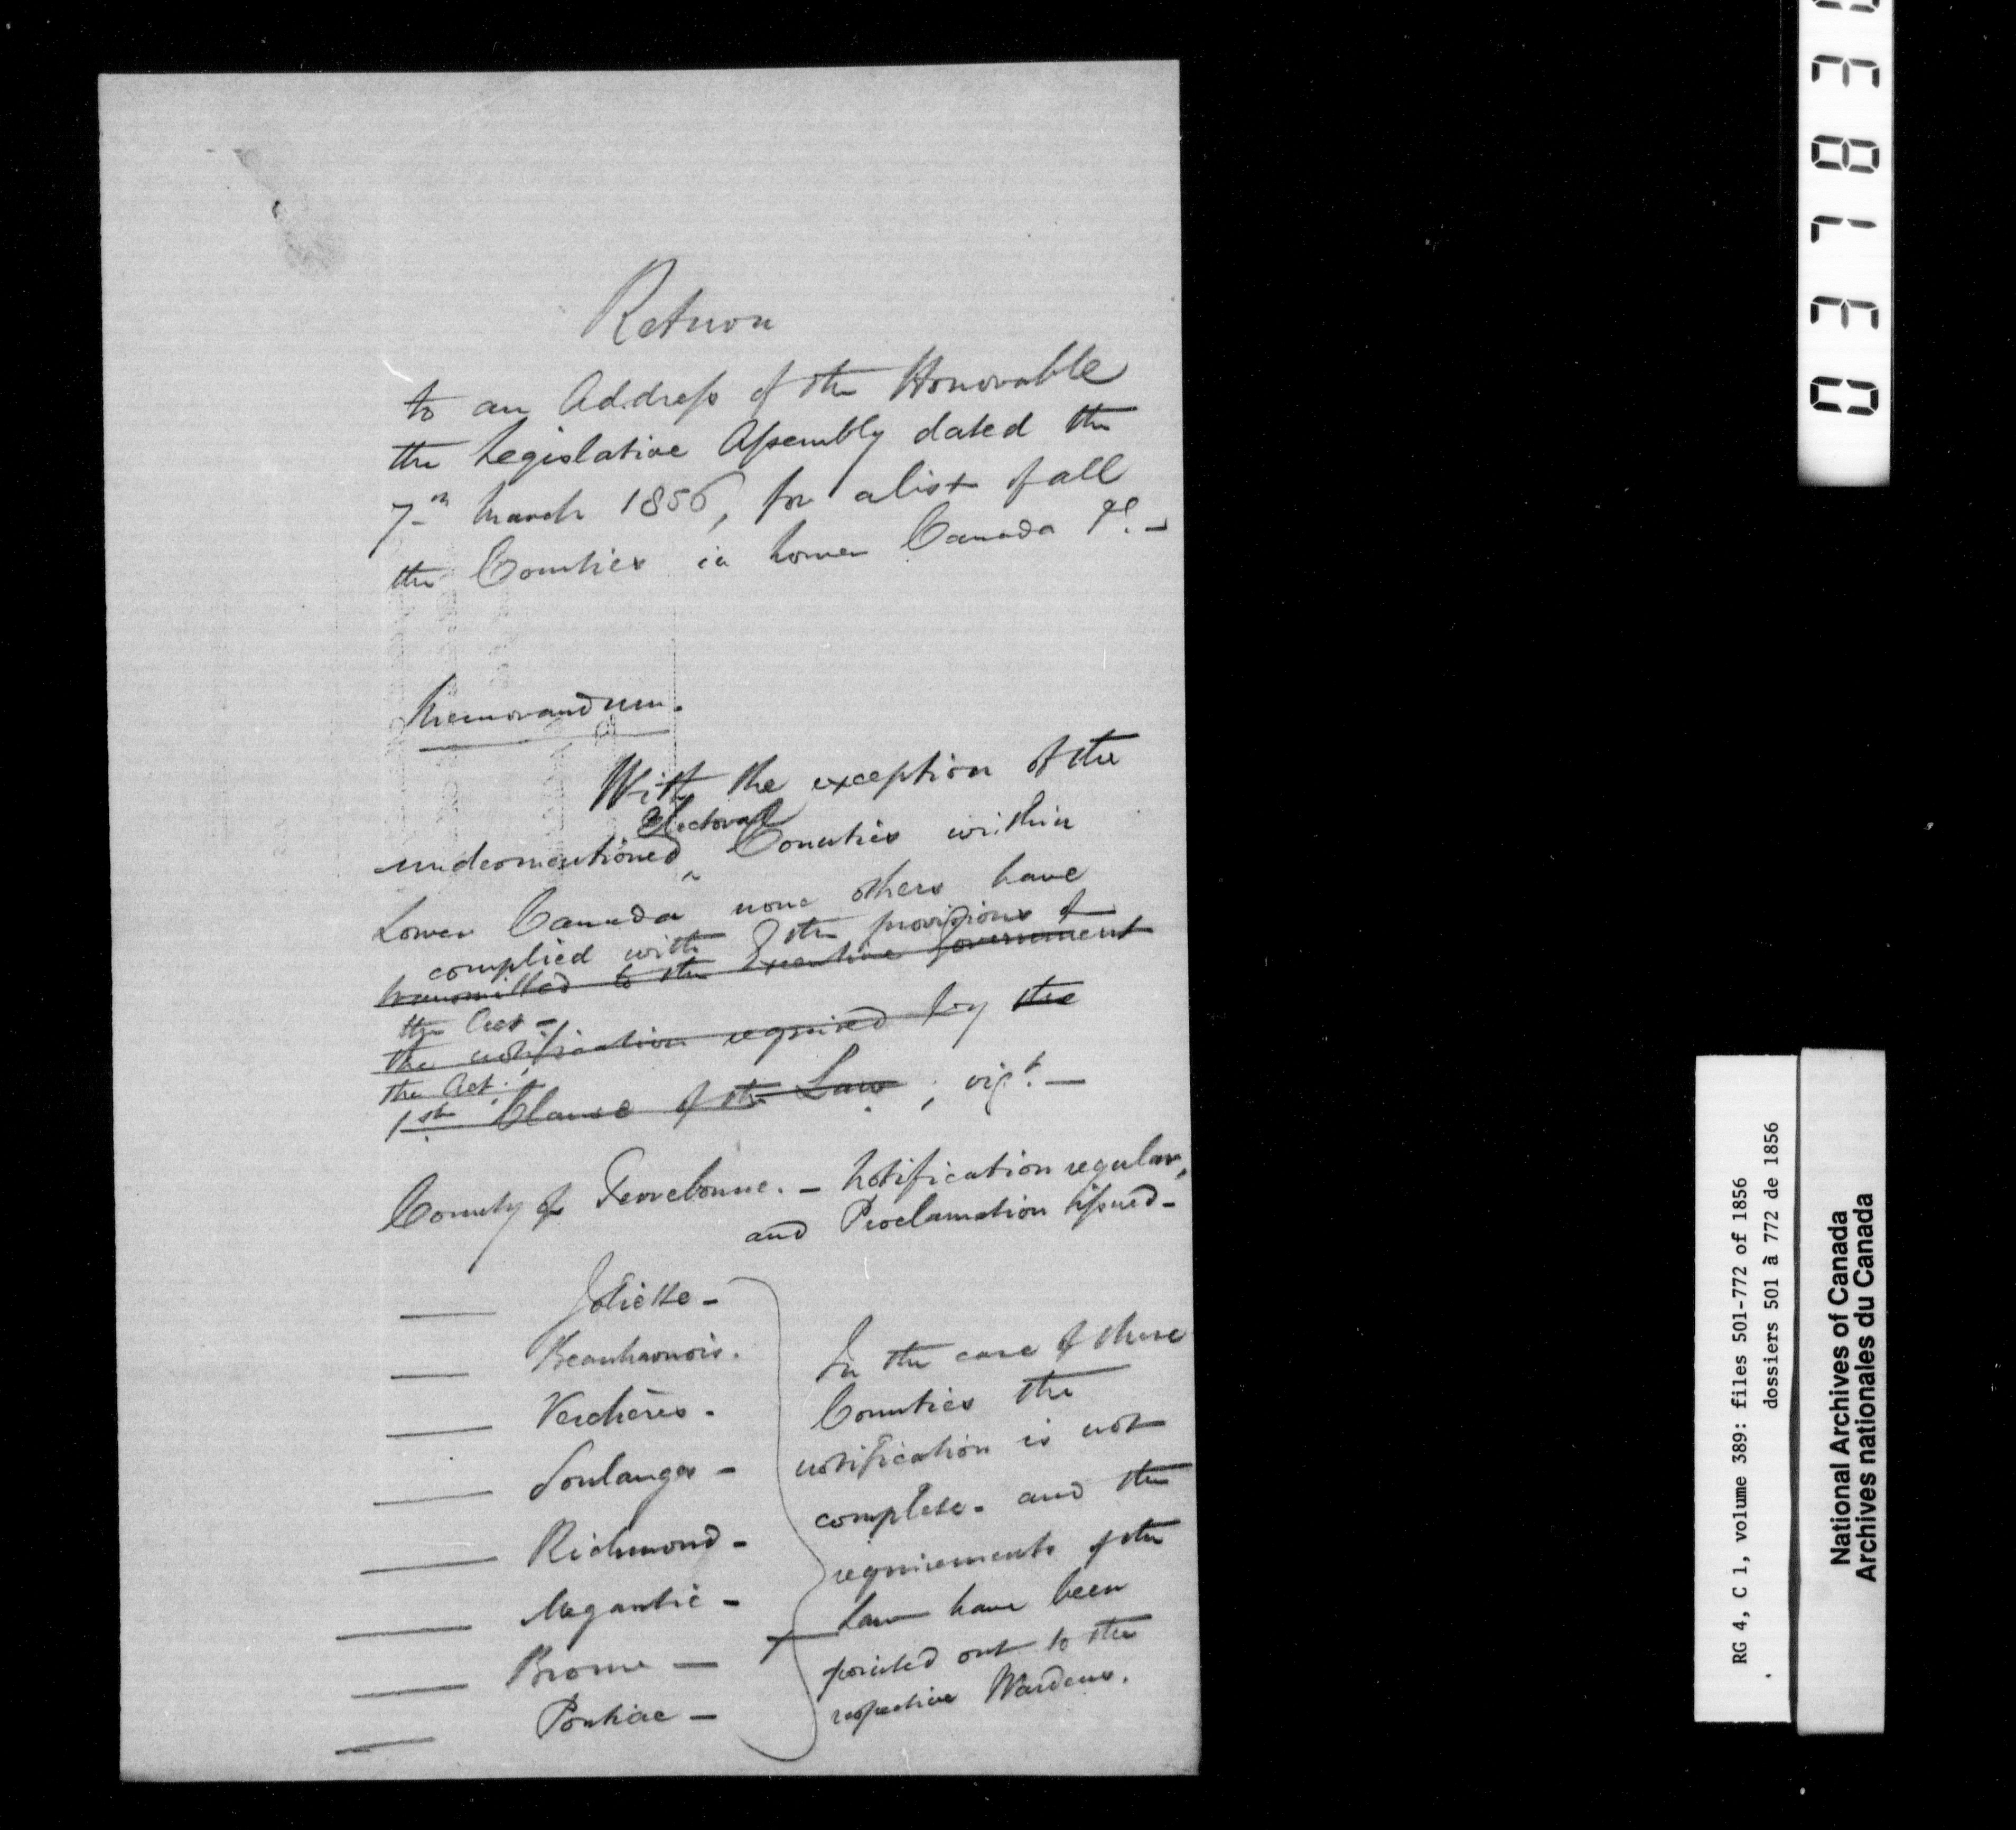 Return
to an Address of the Honorable
the Legislative Assembly dated the
7th March 1856, for a list of all
the Counties in Lower Canada &c. -
Memorandum.
With the exception of the
Electoral
undermentioned ^ Counties within
Lower Canada none others have
complied with the provisions of
transmitted to the Executive Government
the Act -
the notification required by the
the Act.
1st Clause of the Law ; vizt. —
County of Terrebonne. - Notification regular,
and Proclamation issued -
—— Joliette -
—— Beauharnois.
—— Verchères.
—— Soulanges -
—— Richmond -
—— Megantic -
—— Brome —
—— Pontiac —
In the case of these
Counties the
notification is not
complete - and the
requirements of the
Law have been
pointed out to the
respective Wardens.
03783
RG 4, C 1, volume 389: files 501-772 of 1856
dossiers 501 à 772 de 1856
National Archives of Canada
Archives nationales du Canada